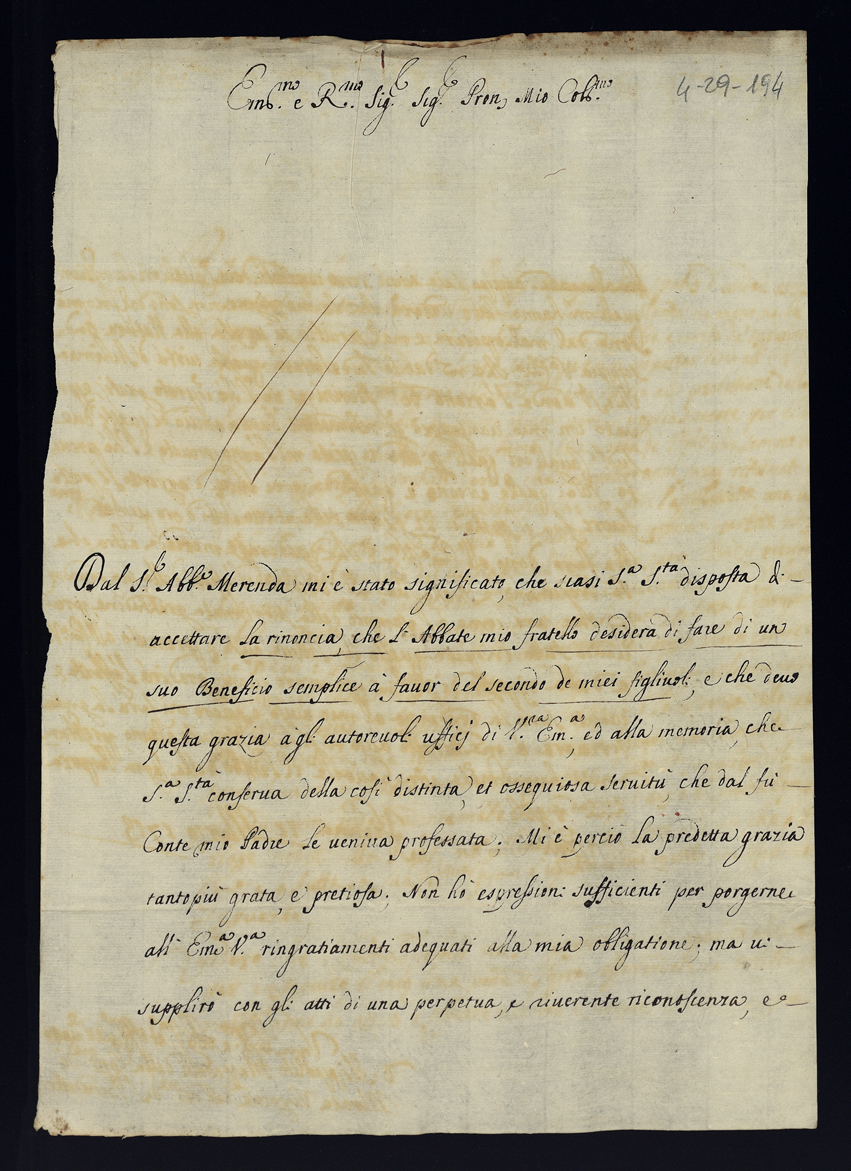 Em.mo e R.mo Sig.r Sig.r Pron, Mio Col.mo
4-29-194
Dal S.r Abb.e Merenda mi è stato significato, che siasi S.a S.tà disposta di
accettare la rinoncia, che l'Abbate mio fratello desidera di fare di un
suo Beneficio semplice à favor del secondo de miei figliuoli, e che devo
questa grazia à gli autorevoli ufficj di V.ra Em.a, ed alla memoria, che
S.a S.tà conserva della così distinta, et ossequiosa servitù, che dal fù
Conte mio Padre le veniva professata; Mi è perciò la predetta grazia
tantopiù grata, e pretiosa; Non hò espressioni sufficienti per porgerne
all' Em.a V.a ringratiamenti adequati alla mia obligatione; ma vi
supplirò con gli atti di una perpetua, e riverente riconoscenza, e